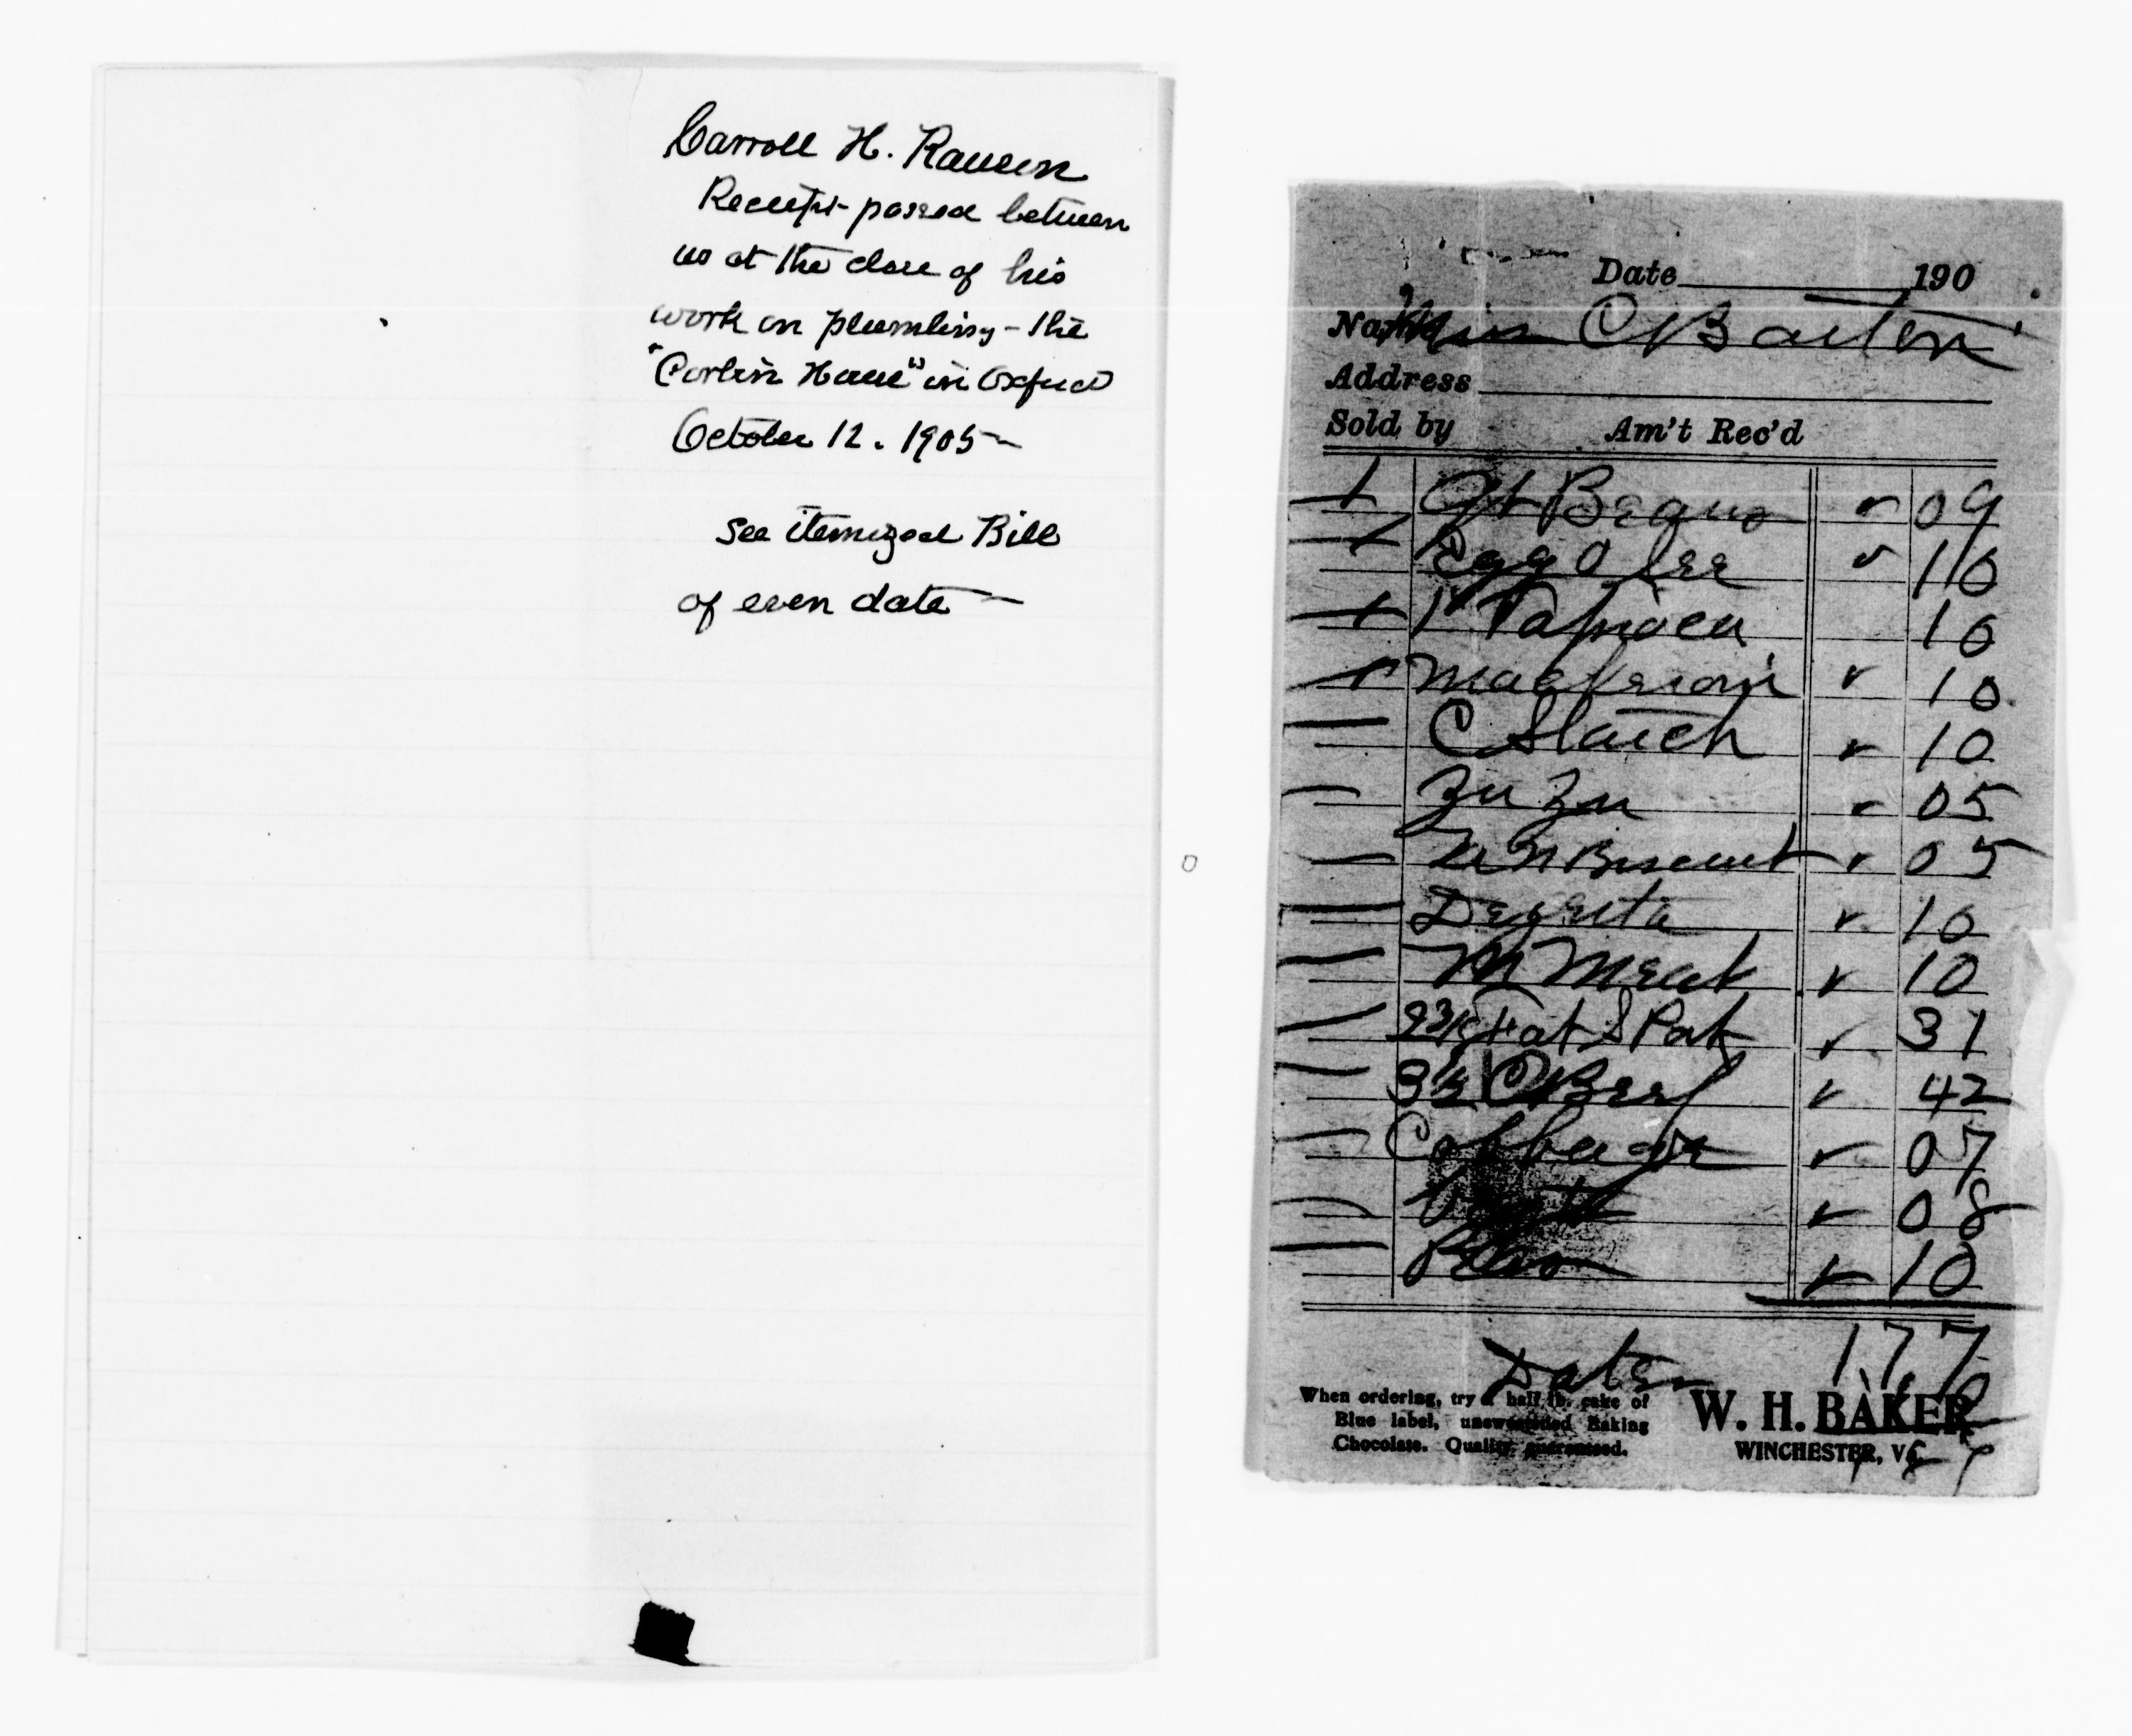 Carroll H. Rawson
Receipts passed between
us at the close of his
work on plumbing - the
"Corbin House" in Oxford
October 12. 1905 -
See itemized Bill
of even date -
Date 190
Name Miss C Barton
Address
Sold by Am't Rec'd
1 Qt Beans ✓ 09
Egg O See ✓ 10
1 Tapioca 10
Mackerroni ✓ 10
C Starch ✓ 10
Zu Zu ✓ 05
Biscuit ✓ 05
Dezerta ✓ 10
M Meat ✓ 10
Fat S Pork ✓ 31
3 1/2 C Beef ✓ 42
Cabbage ✓ 07
✓ 08
✓ 10
1.77
Dates
When ordering, try a half lb. cake of
Blue label, unsweetened Baking
Chocolate. Quality guaranteed.
W. H. BAKER
WINCHESTER, VA.